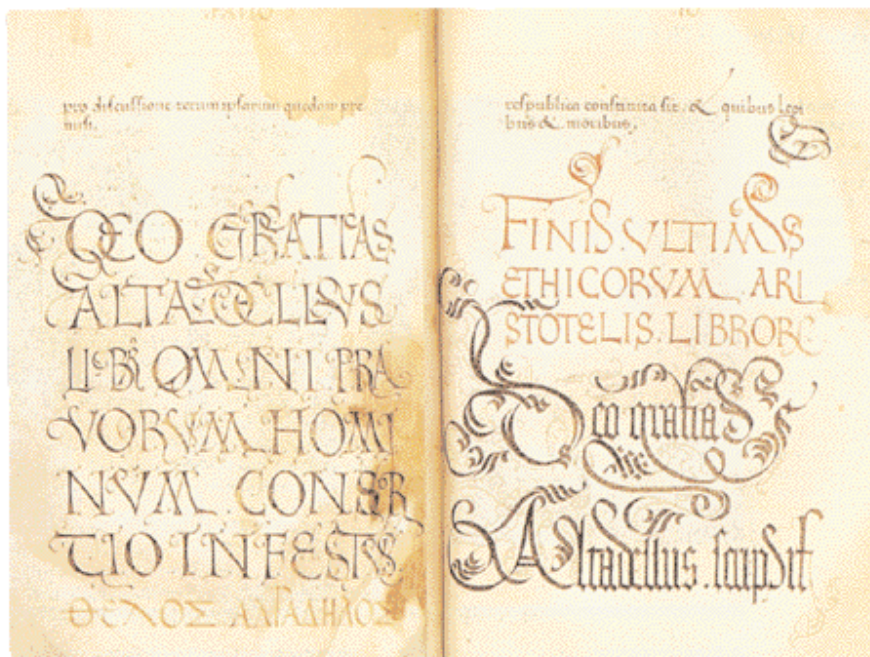 pro discussione rerum ipsarum quedam pre
misi.
DEO GRATIAS
ALTADELLVS
OMNI PRA
VORVM HOMI
NVM CONSOR
TIO INFESTVS
ΘΕΛΟΣ ΑΛΤΑΔΗΛΟΣ
respublica constituta sit. & quibus legi
bus & moribus.
FINIS VLTIMVS
ETHICORVM ARI
STOTELIS LIBRORV
Deo gratias
Altadellus scripsit